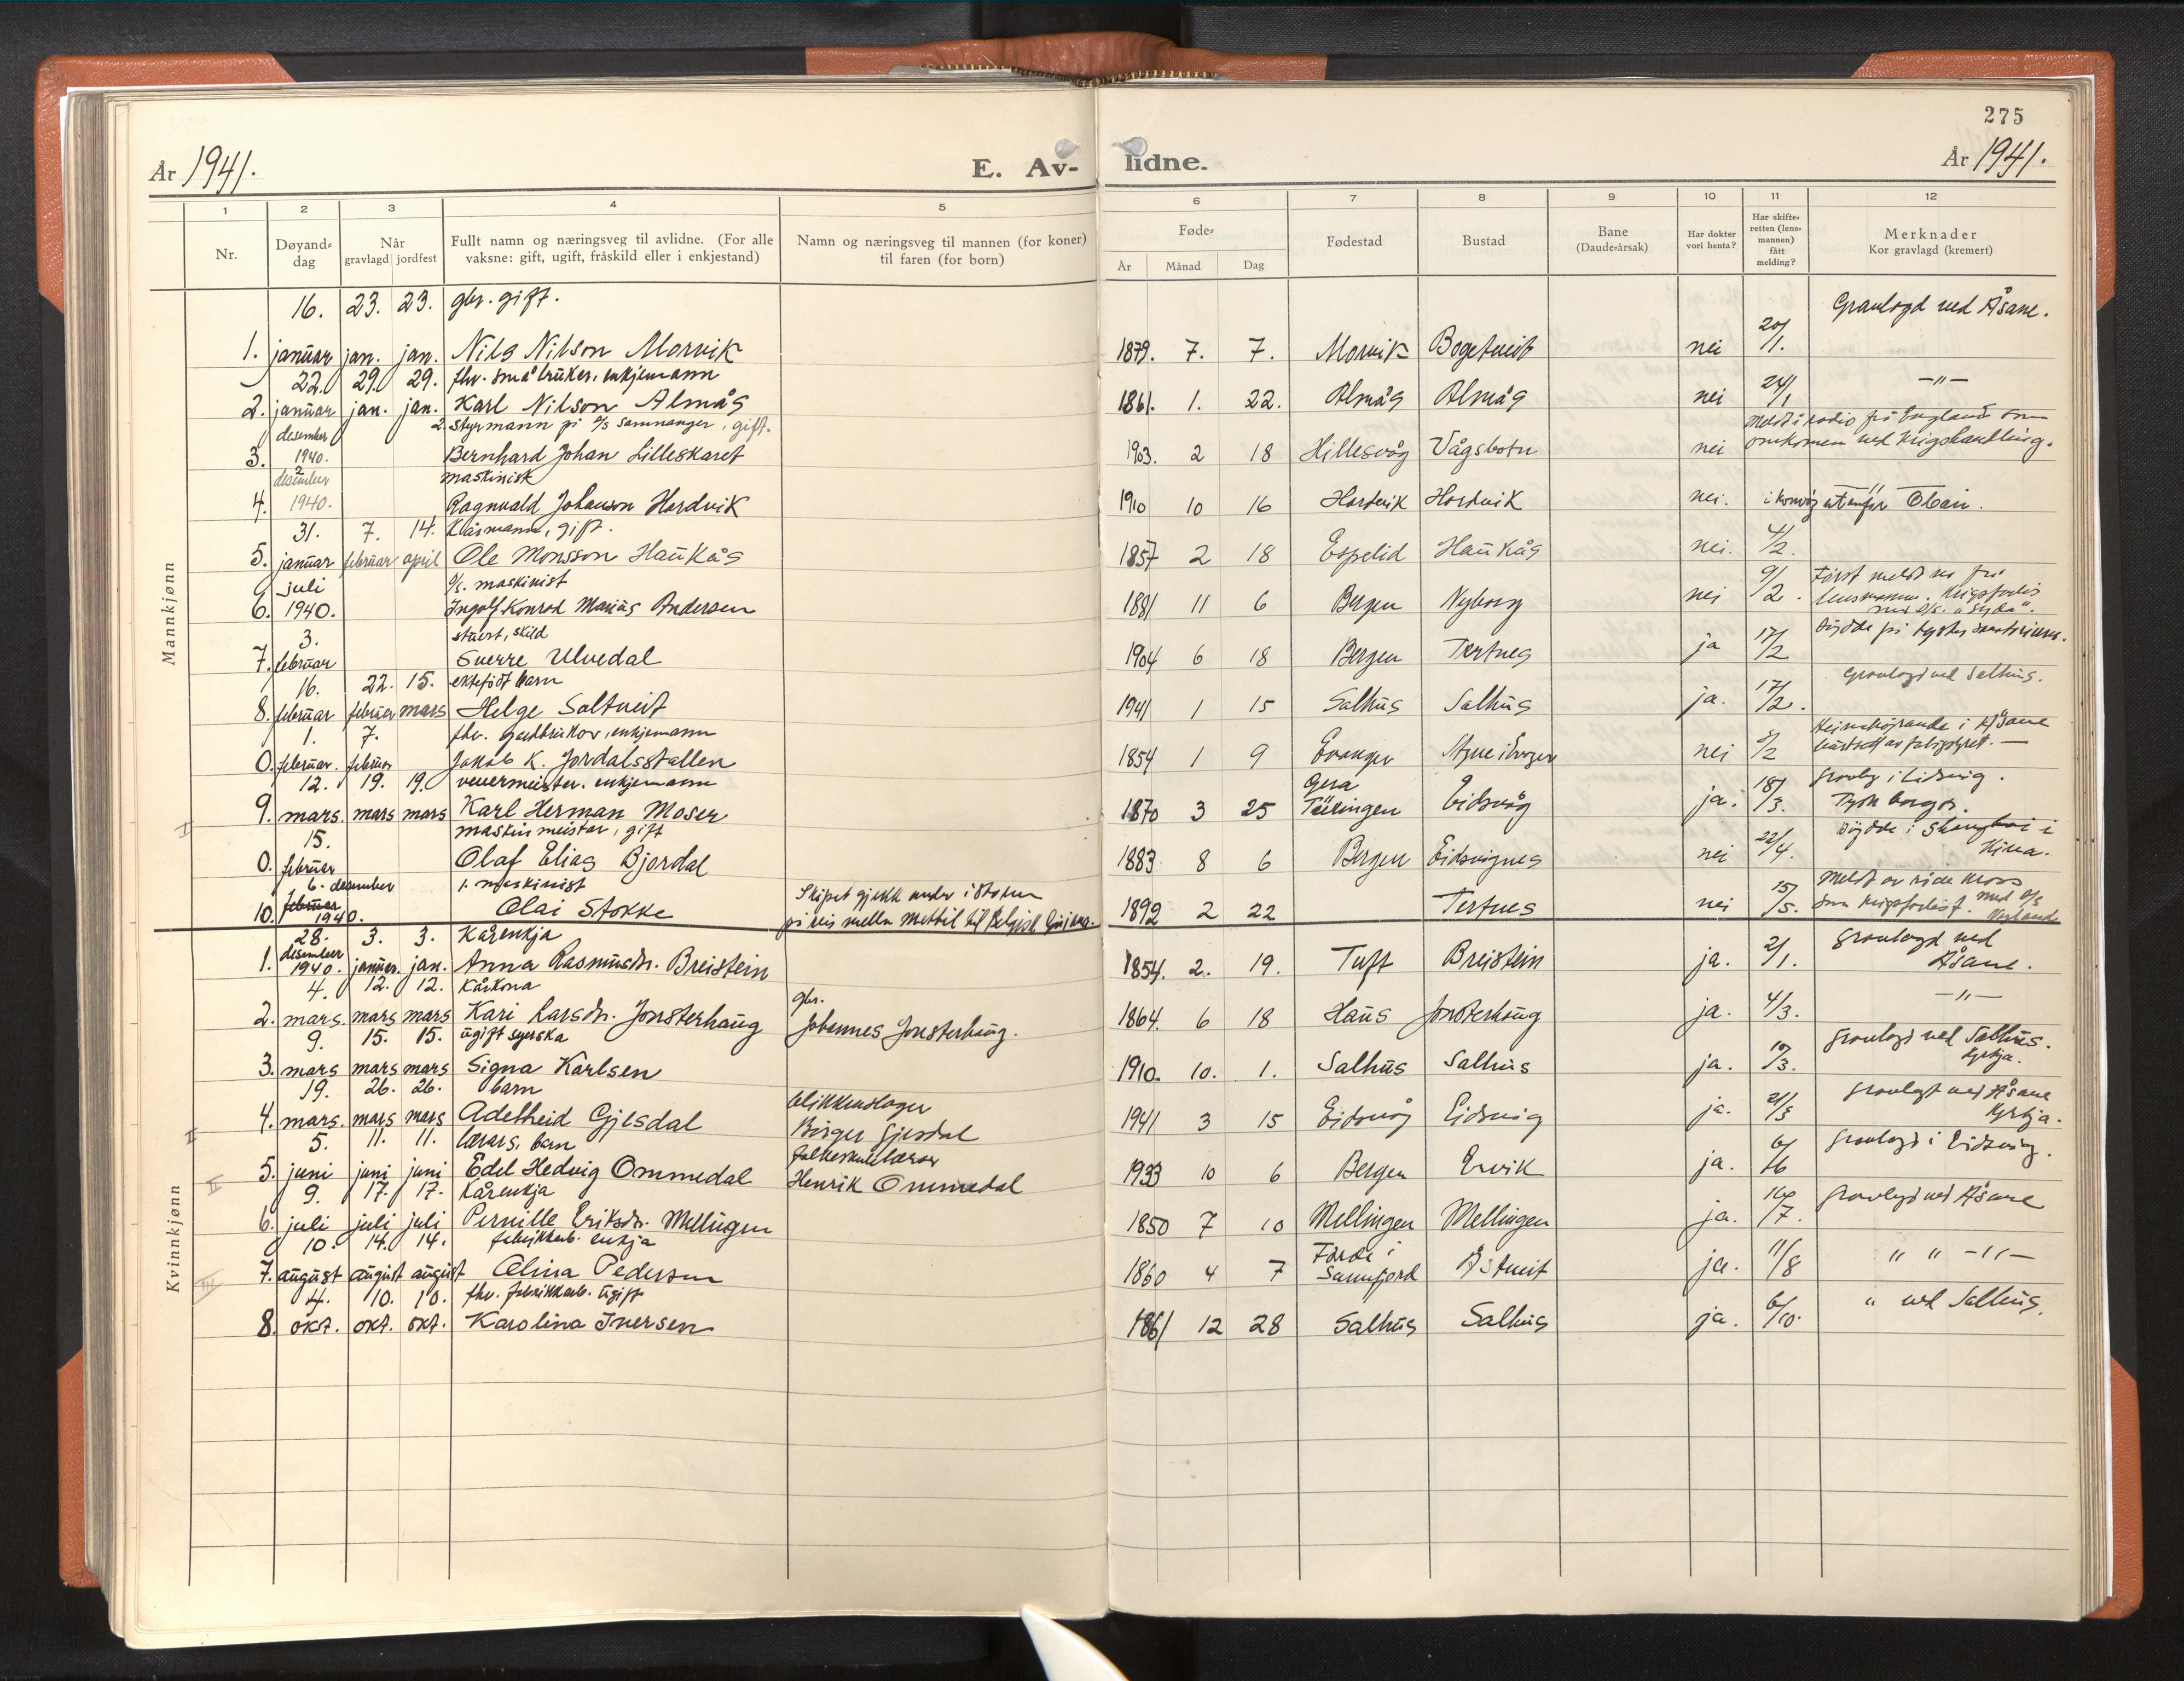 275
År 1941.
E. Av-
lidne.
År 1941.
1 2 3 4 5 6 7 8 9 10 11 12
Nr.
Døyand-
dag
Når
gravlagd jordfest
Fullt namn og næringsveg til avlidne. (For alle
vaksne: gift, ugift, fråskild eller i enkjestand)
Namn og næringsveg til mannen (for koner)
til faren (for born)
Føde-
År Månad Dag
Fødestad
Bustad
Bane
(Daude-årsak)
Har dokter
vori henta?
Har skifte-
retten (lens-
mannen)
fått
melding?
Merknader
Kor gravlagd (kremert)
Mannkjønn
16. 23. 23. gbr. gift. 20/1. Gravlagd ved Åsane.
1. januar jan. jan. Nils Nilson Morvik 1879. 7. 7. Morvik Bogetveit nei
22. 29. 29. fhv. småbruker, enkjemann 24/1 -"-
2. januar jan. jan. Karl Nilson Almås 1861. 1. 22. Almås Almås nei
desember 2. styrmann på D/S Samnanger, gift. Meldt i radio frå England som
3. 1940. Bernhard Johan Lilleskaret 1903. 2 18 Hillesvåg Vågsbotn nei omkomen ved krigshandling.
2 desember maskinist -"-
4. 1940. Ragnvald Johanson Hordvik 1910 10 16 Hordvik Hordvik nei. i konvoy utanfor Oban.
31. 7. 14. Kårmann, gift. 4/2.
5. januar februar april Ole Monsson Haukås 1857 2 18 Espelid Haukås nei.
juli maskinist 9/2. Først meldt no frå
6. 1940. Ingolf Konrad Marius Andersen 1881 11 6 Bergen Nyborg nei lensmannen. Krigsforlis
3. stuert, skild 17/2 Døydde på
7. februar Sverre Ulvedal 1904 6 18 Bergen Tertnes ja
16. 22. 15. ektefødt barn 17/2. Gravlagd ved Salhus.
8. februar februar mars Helge Saltveit 1941 1 15 Salhus Salhus ja.
1. 7. fhv. gardbrukar, enkjemann Heimehøyrande i Åsane
0. februar. februar Jakob K. Jordalsstallen 1854 1 9 Evanger nei
12. 19. 19. vevermeister. enkjemann Gera 18/3. Gravlg i Eidsvåg.
9. mars. mars mars Karl Herman Moser 1870 3 25 Eidsvåg ja. Tysk borgar.
15. maskinmeistar, gift 22/4. Døydde i Shanghai i
0. februar Olaf Elias Bjordal 1883 8 6 Bergen Eidsvågnes nei Kina.
6. desember 1. maskinist Skipet gjekk under i storm 15/5. Meldt av
10. februar 1940. Olai Stokke på reis mella 1892 2 22 Tertnes nei som krigsforlist. med D/S
Kvinnkjønn
28. 3. 3. Kårenkja 2/1. gravlagd ved
1. desember 1940. januar. jan. Anna Rasmusdr. Breistein 1854. 2. 19. Tuft Breistein ja. Åsane.
4. 12. 12. Kårkona gbr. 4/3. -"-
2. mars. mars mars Kari Larsdr. Jonsterhaug Johannes Jonsterhaug. 1864. 6 18 Haus Jonsterhaug ja.
9. 15. 15. ugift syerska gravlagd ved Salhus.
3. mars mars mars Signa Karlsen 1910. 10. 1. Salhus Salhus ja. kyrkja.
19. 26. 26. barn blikkenslager gravlagt ved Åsane
4. mars. mars mars Adelheid Gjesdal Birger Gjesdal 1941 3 15 Eidsvåg Eidsvåg ja. kyrkja.
5. 11. 11. lærars barn folkeskulelærar gravlagt i Eidsvåg.
5. juni juni juni Edel Hedvig Ommedal Henrik Ommedal 1933 10 6 Bergen Ervik ja.
9. 17. 17. Kårenkja gravlagd ved Åsane
6. juli juli juli Pernille Eriksdr. Mellingen 1850 7 10 Mellingen Mellingen ja.
10. 14. 14. fabrikkarb. enkja Førde i 11/8 " " -"-
7. august august august Olina Pedersen 1860 4 7 Sunnfjord Åstveit ja.
4. 10. 10. fhv. fabrikkarb. ugift 6/10. " ved Salhus.
8. okt. okt. okt. Karolina Iversen 1861 12 28 Salhus Salhus ja.